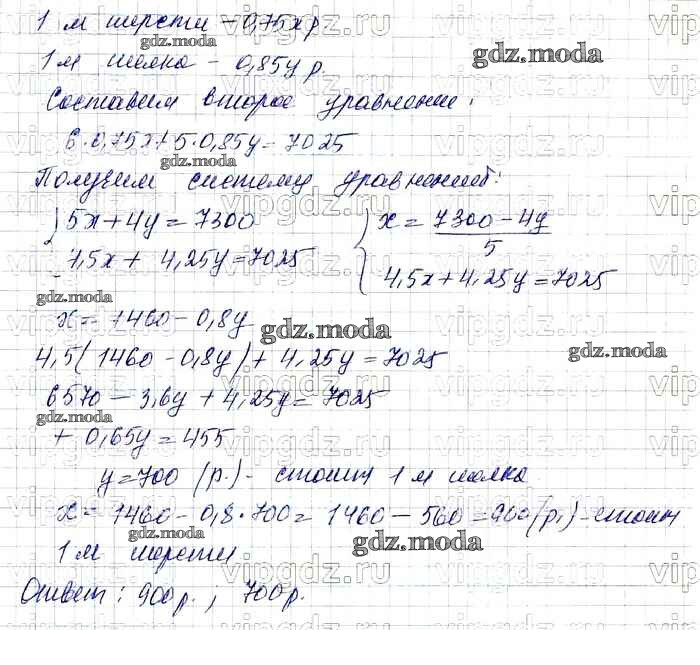 1 м шерсти – 0,75x р
1 м шелка – 0,85y р.
Составим второе уравнение:
6·0,75x+5·0,85y=7025
Получим систему уравнений:
5x+4y=7300
4,5x+4,25y=7025
x=7300-4y
5
4,5x+4,25y=7025
x=1460-0,8y
4,5(1460-0,8y)+4,25y=7025
6570-3,6y+4,25y=7025
+0,65y=455
y=700 (р.)- стоит 1 м шелка
x=1460-0,8·700=1460-560=900(р.)-стоит
1 м шерсти
Ответ: 900р.; 700р.
gdz.moda
gdz.moda
gdz.moda
gdz.moda
gdz.moda
gdz.moda
gdz.moda
gdz.moda
gdz.moda
vipgdz.ru